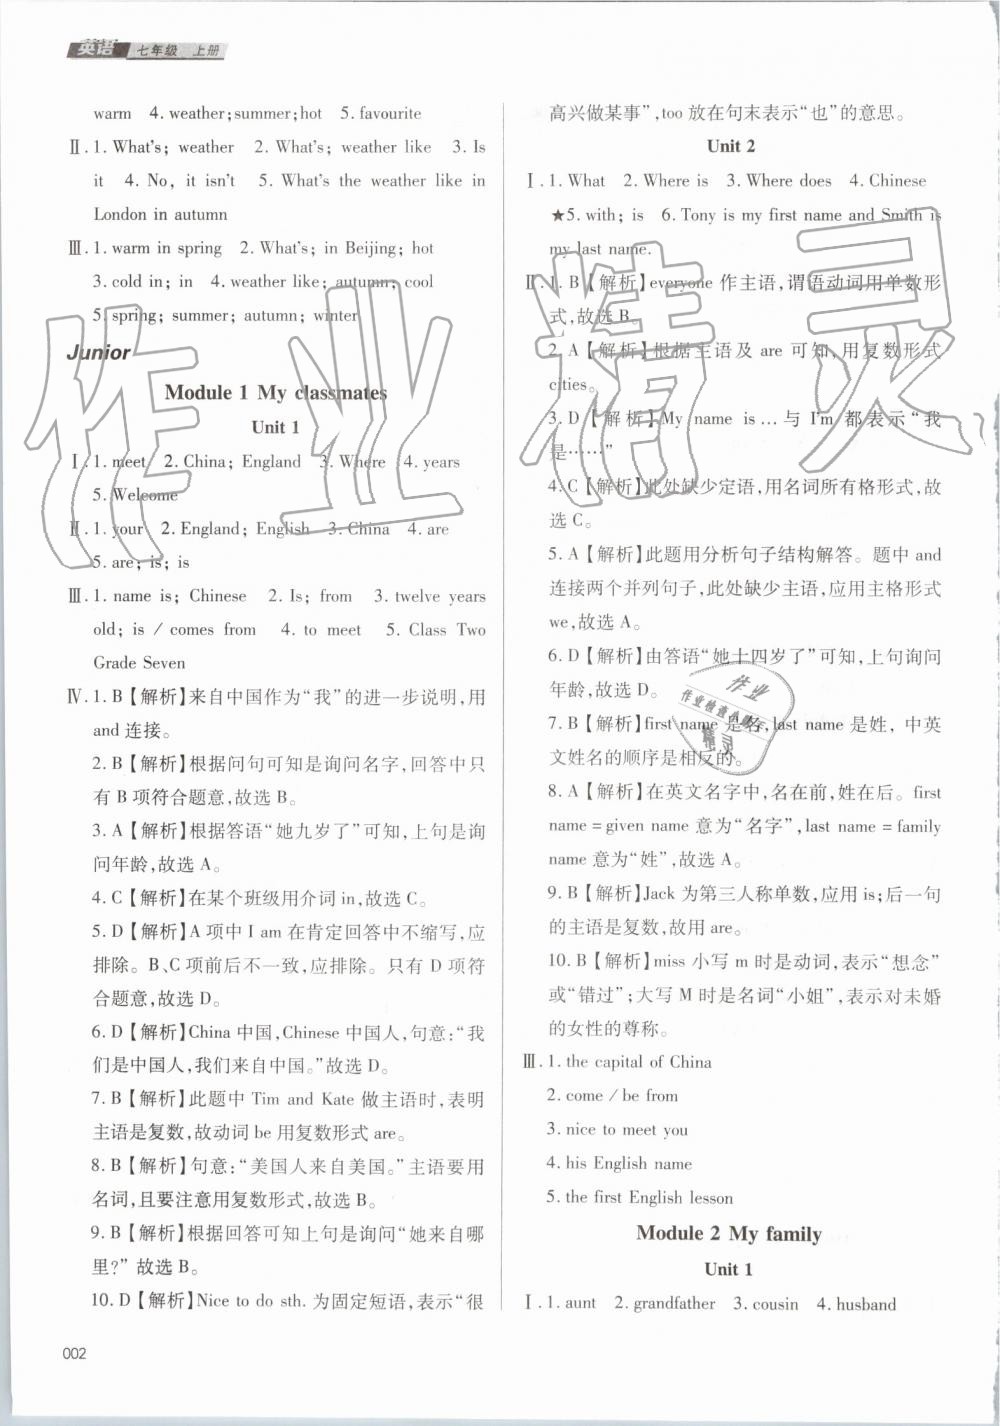 英语 七年级 上册
warm 4. weather;summer;hot 5. favourite
Ⅱ. 1. What's; weather 2. What's; weather like 3. Is
it 4. No, it isn't 5. What's the weather like in
London in autumn
Ⅲ. 1. warm in spring 2. What's; in Beijing; hot
3. cold in; in 4. weather like; autumn; cool
5. spring; summer; autumn; winter
Junior
Module 1 My classmates
Unit 1
Ⅰ. 1. meet 2. China; England 3. Where 4. years
5. Welcome
Ⅱ. 1. your 2. England; English 3. China 4. are
5. are; is; is
Ⅲ. 1. name is; Chinese 2. Is; from 3. twelve years
old; is / comes from 4. to meet 5. Class Two
Grade Seven
Ⅳ. 1. B【解析】来自中国作为“我”的进一步说明,用
and 连接。
2. B【解析】根据问句可知是询问名字,回答中只
有 B 项符合题意,故选 B。
3. A【解析】根据答语“她九岁了”可知,上句是询
问年龄,故选 A。
4. C【解析】在某个班级用介词 in,故选 C。
5. D【解析】A 项中 I am 在肯定回答中不缩写,应
排除。B、C 项前后不一致,应排除。只有 D 项符
合题意,故选 D。
6. D【解析】China 中国,Chinese 中国人,句意:“我
们是中国人,我们来自中国。”故选 D。
7. B【解析】此题中 Tim and Kate 做主语时,表明
主语是复数,故动词 be 用复数形式 are。
8. B【解析】句意:“美国人来自美国。”主语要用
名词,且要注意用复数形式,故选 B。
9. B【解析】根据回答可知上句是询问“她来自哪
里?”故选 B。
10. D【解析】Nice to do sth. 为固定短语,表示“很
002
高兴做某事”,too 放在句末表示“也”的意思。
Unit 2
Ⅰ. 1. What 2. Where is 3. Where does 4. Chinese
★5. with; is 6. Tony is my first name and Smith is
my last name.
Ⅱ. 1. B【解析】everyone 作主语,谓语动词用单数形
式,故选 B。
2. A【解析】根据主语及 are 可知,用复数形式
cities。
3. D【解析】My name is … 与 I'm 都表示“我
是……”
4. C【解析】此处缺少定语,用名词所有格形式,故
选 C。
5. A【解析】此题用分析句子结构解答。题中 and
连接两个并列句子,此处缺少主语,应用主格形式
we,故选 A。
6. D【解析】由答语“她十四岁了”可知,上句询问
年龄,故选 D。
7. B【解析】first name 是名,last name 是姓, 中英
文姓名的顺序是相反的。
8. A【解析】在英文名字中,名在前,姓在后。first
name = given name 意为“名字”,last name = family
name 意为“姓”,故选 A。
9. B【解析】Jack 为第三人称单数,应用 is;后一句
的主语是复数,故用 are。
10. B【解析】miss 小写 m 时是动词,表示“想念”
或“错过”;大写 M 时是名词“小姐”,表示对未婚
的女性的尊称。
Ⅲ. 1. the capital of China
2. come / be from
3. nice to meet you
4. his English name
5. the first English lesson
Module 2 My family
Unit 1
Ⅰ. 1. aunt 2. grandfather 3. cousin 4. husband
作业精灵
作业
作业检查小助手
精灵